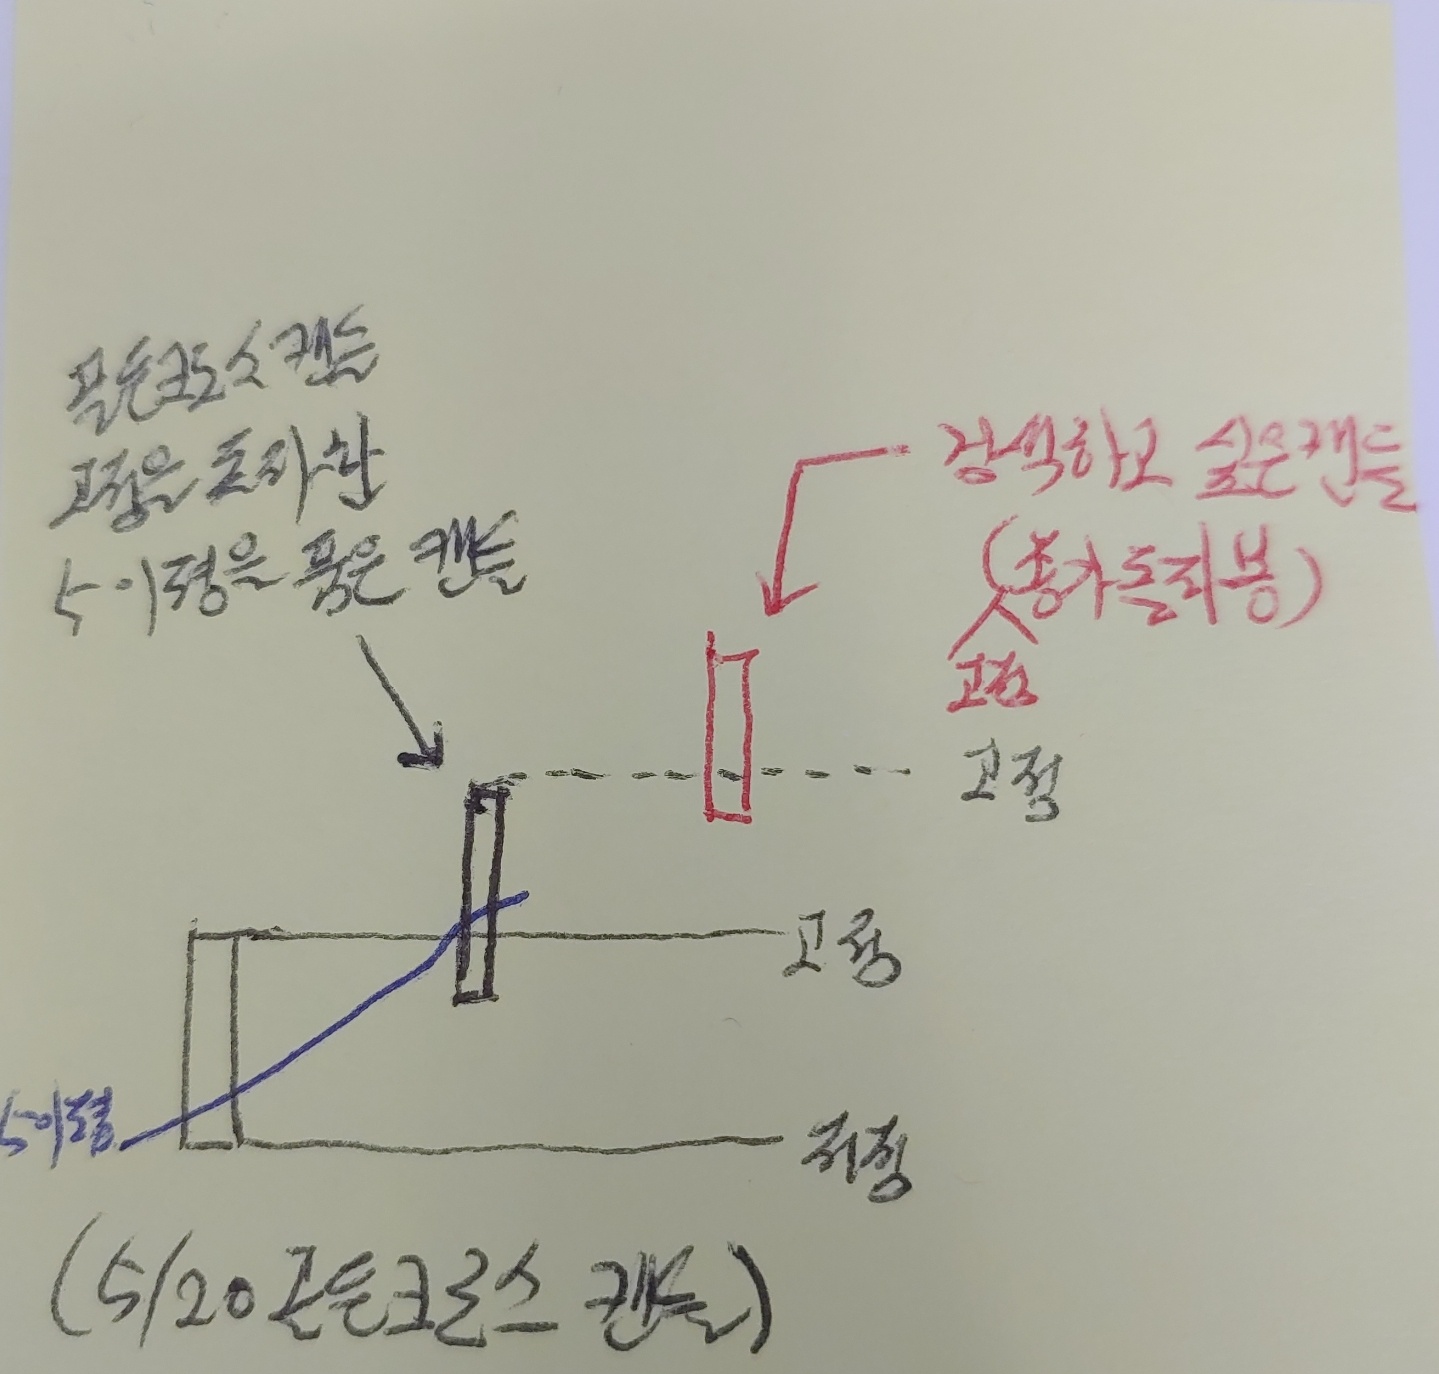 골든크로스 캔들
고점을 돌파한
5이평을 품은 캔들
검색하고 싶은캔들
(종가돌파봉)
고점
고점
고점
5이평
저점
(5/20 골든크로스 캔들)